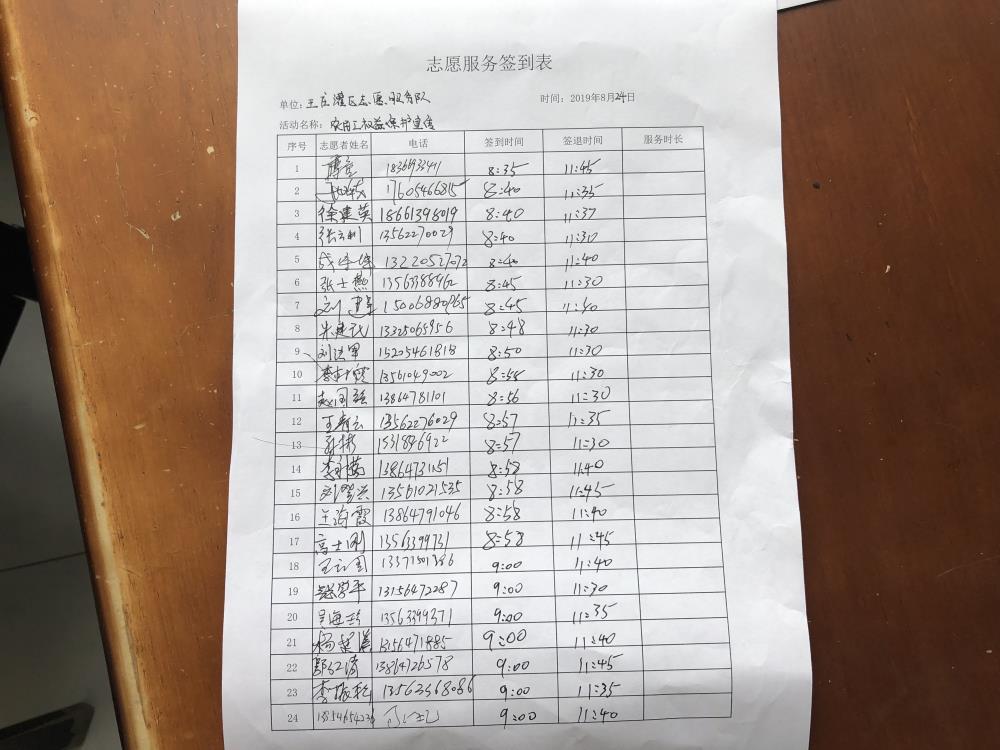 志愿服务签到表
单位:王庄灌区志愿服务队 时间:2019年8月24日
活动名称:农民工权益保护宣传
序号 志愿者姓名 电话 签到时间 签退时间 服务时长
1 8:35 11:45
2 17605466815 8:40 11:35
3 徐建英 18661398019 8:40 11:37
4 张立新 13562270029 8:40 11:30
5 13220527072 8:40 11:40
6 张士燕 13563388462 8:45 11:30
7 刘建 15006880965 8:45 11:40
8 朱建 13325065956 8:48 11:30
9 刘洪军 15205461818 8:50 11:30
10 李 霞 13561049002 8:55 11:30
11 赵国强 13864781101 8:56 11:30
12 王春云 13562276029 8:57 11:35
13 8:57 11:30
14 李 13864731151 8:58 11:40
15 刘 13561021535 8:58 11:45
16 王海霞 13864791046 8:58 11:40
17 高士刚 13563399731 8:58 11:45
18 王立国 13371501386 9:00 11:40
19 赵学平 13156472287 9:00 11:30
20 吴海珍 13563399371 9:00 11:35
21 杨 13156471885 9:00 11:40
22 13864726578 9:00 11:45
23 李振乾 13562368086 9:00 11:35
24 9:00 11:40